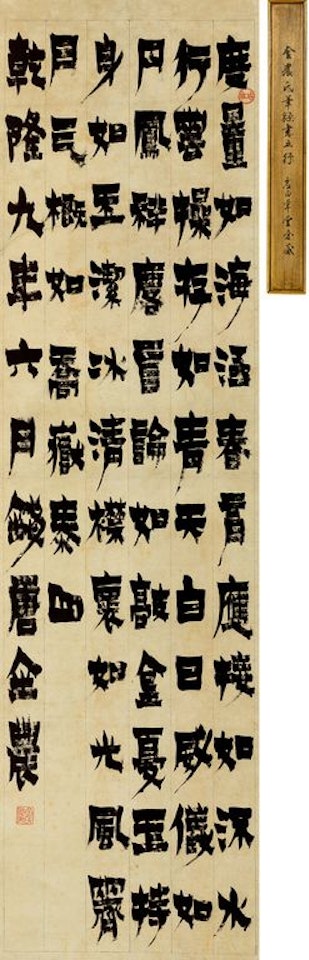 度量如海涵春育應機如流水
行雲操存如青天白日威儀如
丹鳳祥麐言論如敲金戛玉持
身如玉潔冰清襟褱如光風霽
月气概如喬嶽泰山
乾隆九年六月錢唐金農
金農氏筆